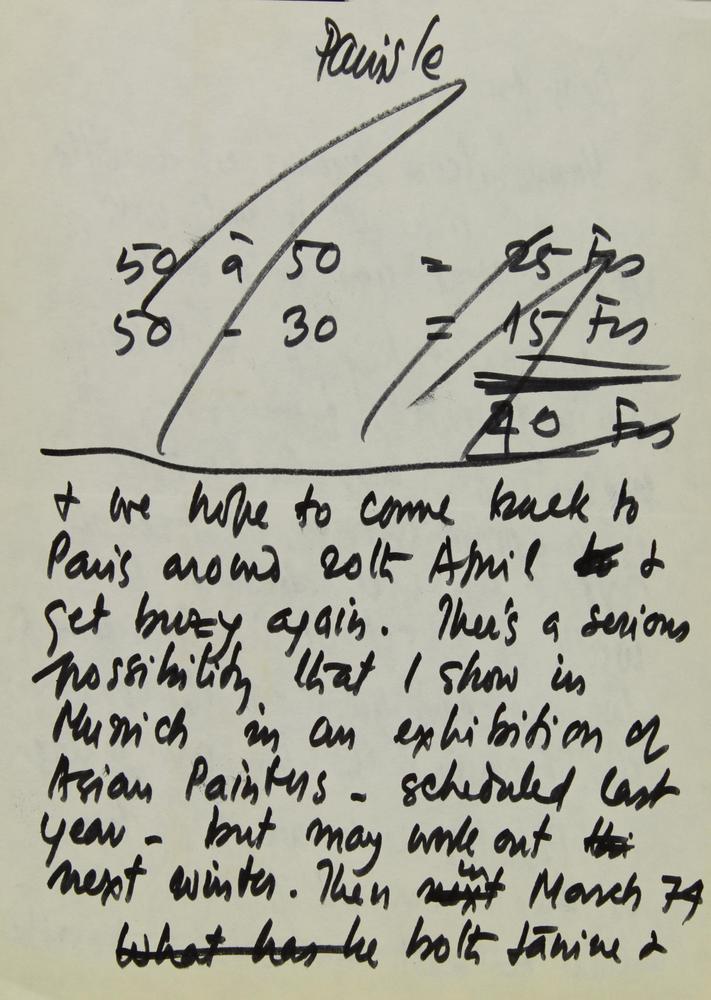 Paris le
50 à 50 = 25 Frs
50 - 30 = 15 Frs
40 Frs
& we hope to come back to
Paris around 20th April to &
get buzy again. Ther's a serious
possibility that I show in
Munich in an exhibition of
Asian Painters - scheduled last
year - but may work out thi
next winter. Then next in March 74
What has he both Janine &